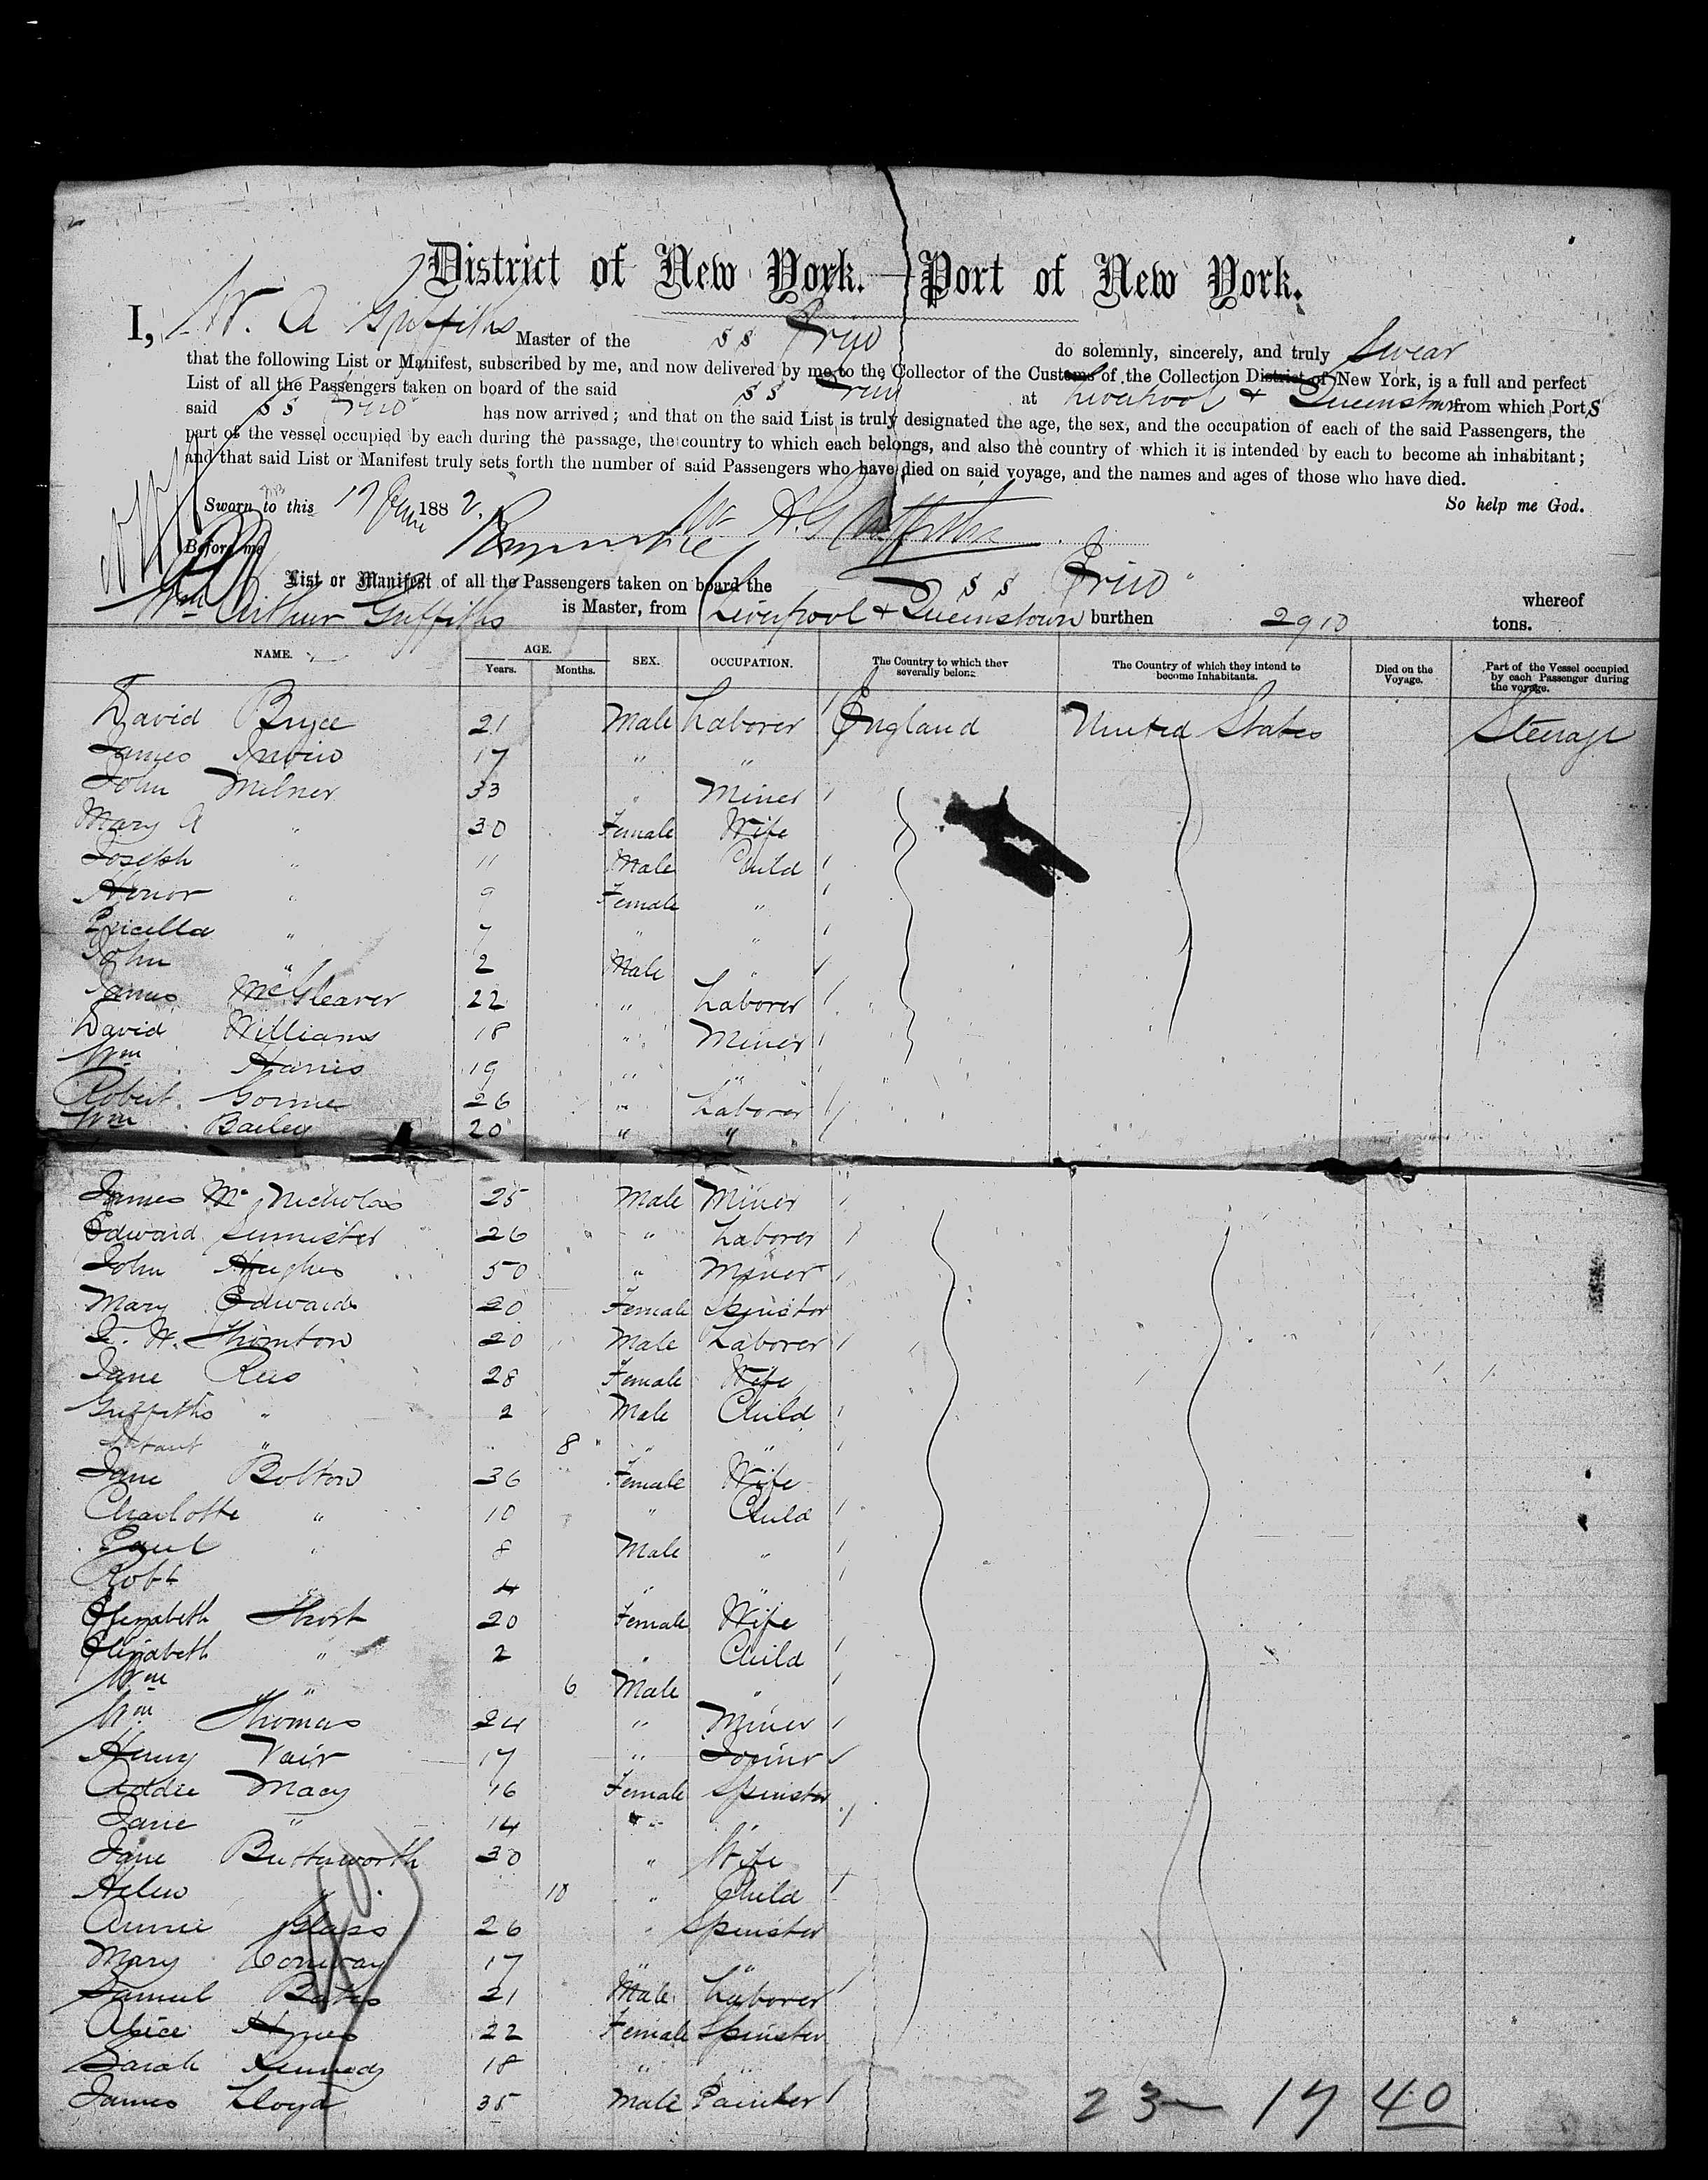 District of New York.—Port of New York.
I, W. A Griffiths Master of the S S Erin do solemnly, sincerely, and truly swear
that the following List or Manifest, subscribed by me, and now delivered by me to the Collector of the Customs of the Collection District of New York, is a full and perfect
List of all the Passengers taken on board of the said S S Erin at Liverpool & Queenstown from which Port,s
said S S Erin has now arrived; and that on the said List is truly designated the age, the sex, and the occupation of each of the said Passengers, the
part of the vessel occupied by each during the passage, the country to which each belongs, and also the country of which it is intended by each to become an inhabitant;
and that said List or Manifest truly sets forth the number of said Passengers who have died on said voyage, and the names and ages of those who have died.
Sworn to this 17 1882. So help me God.
W A Griffiths
Before me
List or Manifest of all the Passengers taken on board the S S Erin whereof
Wm Arthur Griffiths is Master, from Liverpool & Queenstown burthen 2910 tons.
NAME. AGE. Years. Months. SEX. OCCUPATION. The Country to which they severally belong. The Country of which they intend to become Inhabitants. Died on the Voyage. Part of the Vessel occupied by each Passenger during the voyage.
David Bryce 21 Male Laborer England United States Steerage
James 17 " "
John Milner 33 " Miner
Mary A " 30 Female Wife
Joseph " 11 Male Child
Honor " 9 Female "
Pricella " 7 " "
John " 2 Male "
James McGleaver 22 " Laborer
David Williams 18 " Miner
Wm Harris 19 " "
Robert Gorrie 26 " Laborer
Wm Bailey 20 " "
James Mc Nicholas 25 Male Miner
Edward 26 " Laborer
John Hughes 50 " Miner
Mary Edwards 20 Female Spinster
H. Thornton 20 Male Laborer
Jane Rees 28 Female Wife
Griffiths " 2 Male Child
Infant " " 8 " "
Jane Bolton 36 Female Wife
Charlotte " 10 " Child
Paul " 8 Male "
Robt " 4 " "
Elizabeth Short 20 Female Wife
Elizabeth " 2 " Child
Wm " 6 Male "
Wm Thomas 24 " Miner
Henry Vair 17 " Joiner
Addie Macy 16 Female Spinster
Jane " 14 " "
Jane Butterworth 30 " Wife
Helen " 10 " Child
Annie Glass 26 " Spinster
Mary Conway 17 " "
Samuel Bates 21 Male Laborer
Alice Hynes 22 Female Spinster
Sarah Kennedy 18 " "
James Lloyd 35 Male Painter
23 17 40